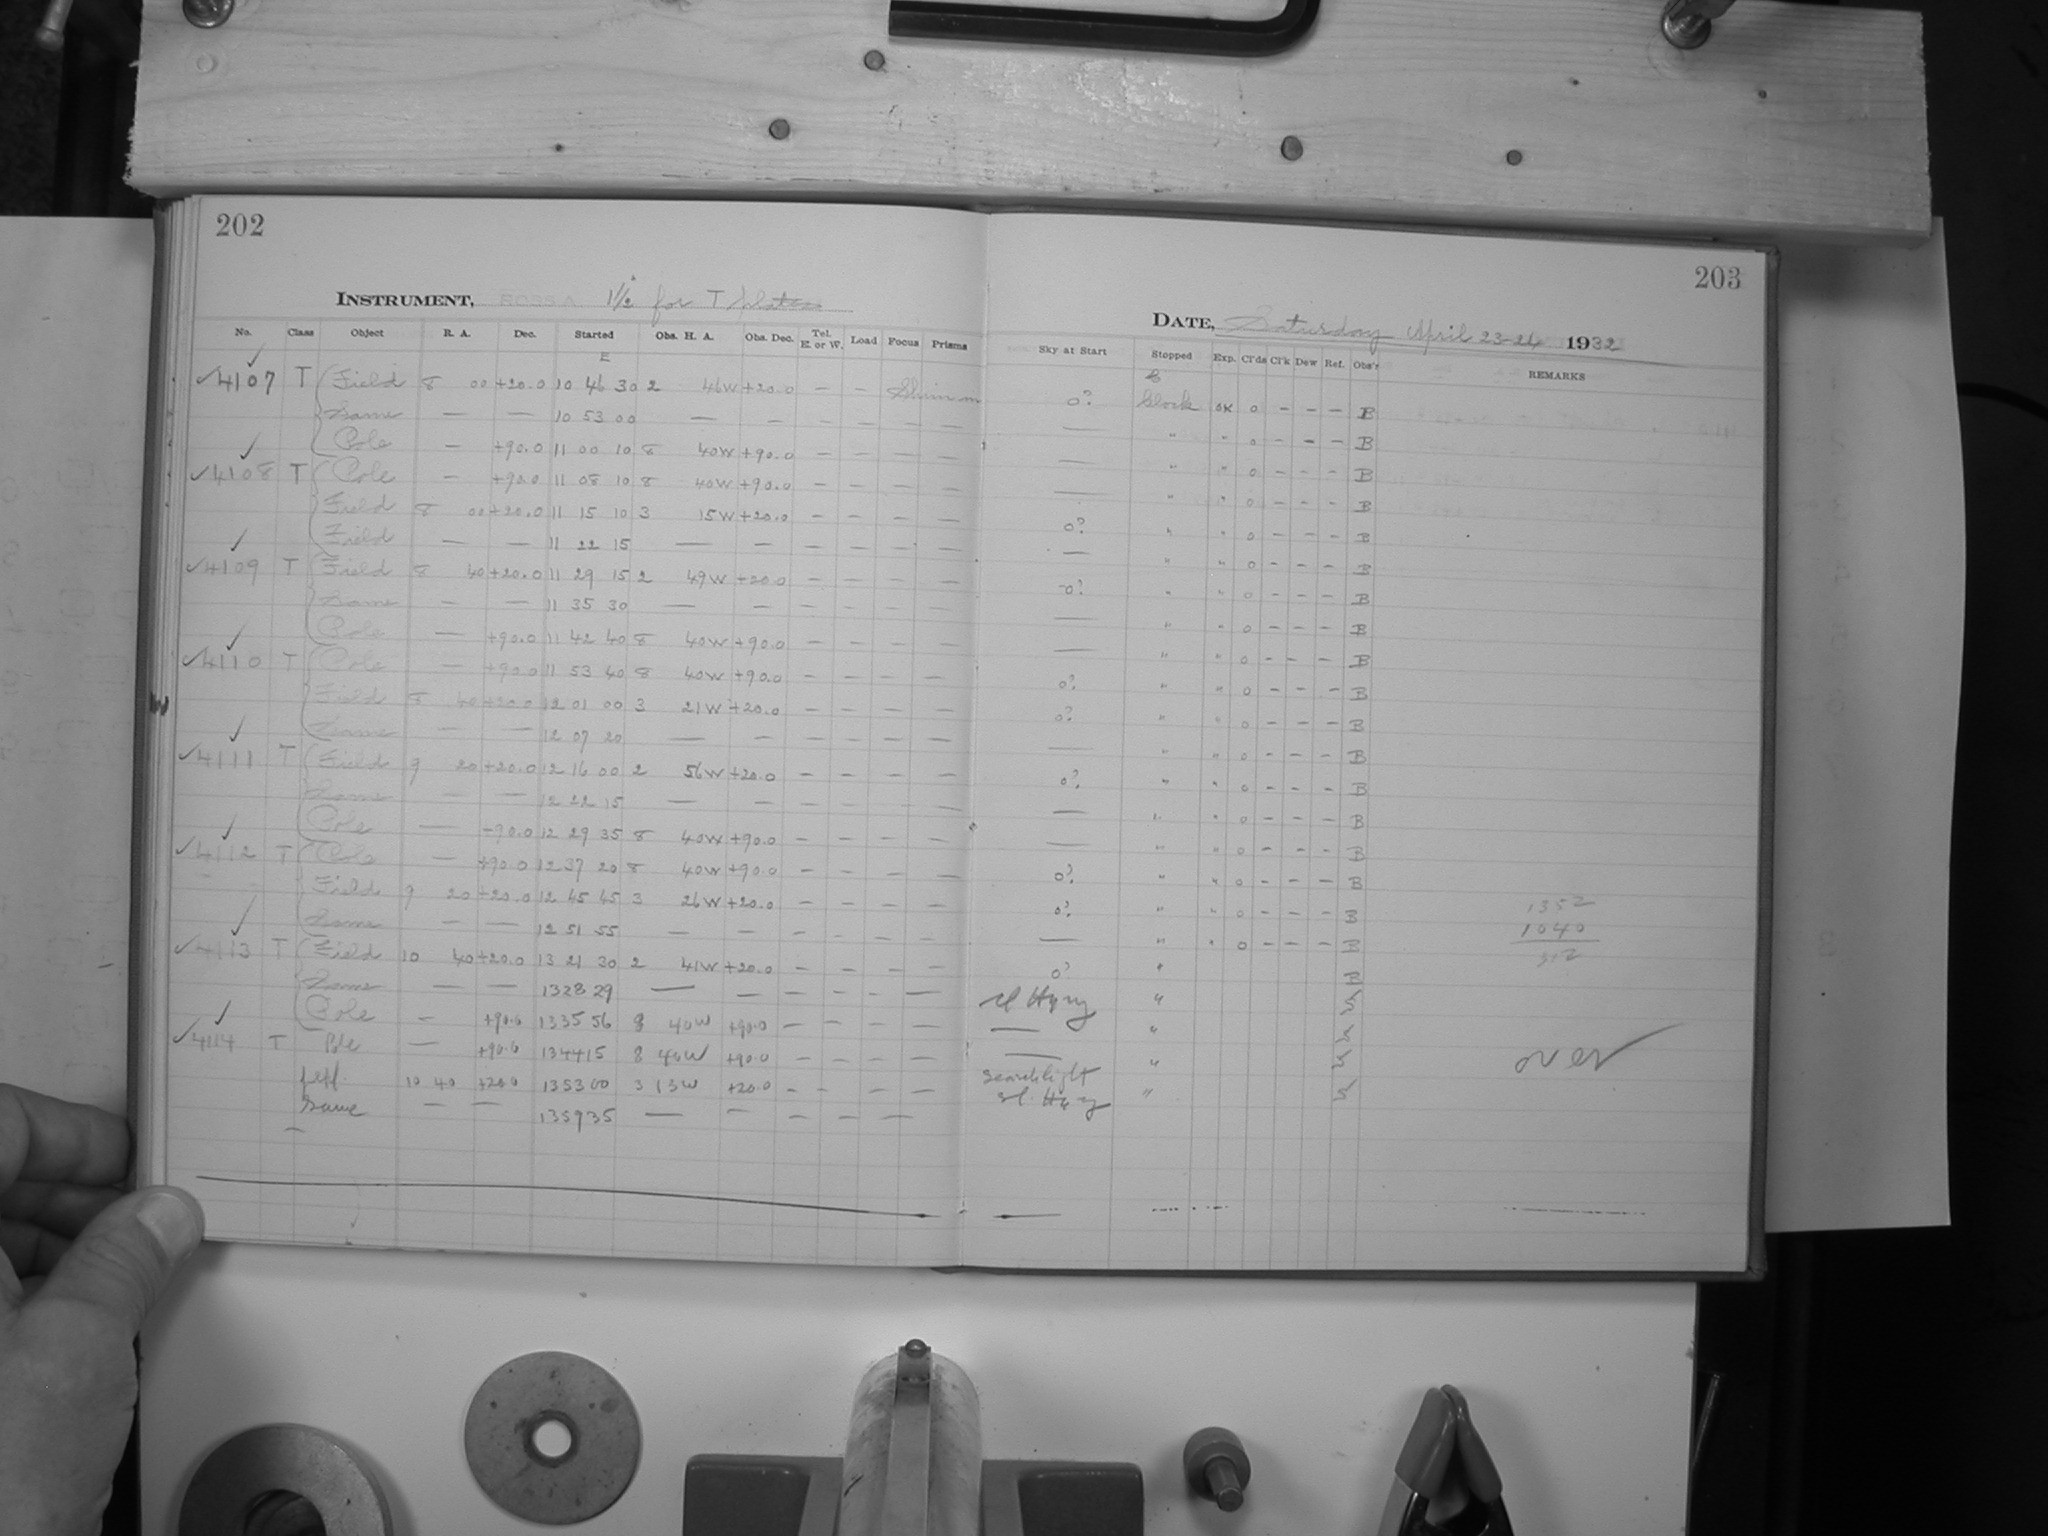 202
INSTRUMENT, ROSS A 1½ for T plates
No. Class Object R. A. Dec. Started Obs. H. A. Obs. Dec. Tel. E. or W. Load Focus Prisms
E
✓4107 T Field 8 00 +20.0 10 46 30 2 46W +20.0 — —
Same — — 10 53 00 — — — — — —
Pole — +90.0 11 00 10 8 40W +90.0 — — — —
✓4108 T Pole — +90.0 11 08 10 8 40W +90.0 — — — —
Field 8 00 +20.0 11 15 10 3 15W +20.0 — — — —
Field — — 11 22 15 — — — — — —
✓4109 T Field 8 40 +20.0 11 29 15 2 49W +20.0 — — — —
Same — — 11 35 30 — — — — — —
Pole — +90.0 11 42 40 8 40W +90.0 — — — —
✓4110 T Pole — +90.0 11 53 40 8 40W +90.0 — — — —
Field 8 40 +20.0 12 01 00 3 21W +20.0 — — — —
Same — — 12 07 20 — — — — — —
✓4111 T Field 9 20 +20.0 12 16 00 2 56W +20.0 — — — —
Same — — 12 22 15 — — — — — —
Pole — +90.0 12 29 35 8 40W +90.0 — — — —
✓4112 T Pole — +90.0 12 37 20 8 40W +90.0 — — — —
Field 9 20 +20.0 12 45 45 3 26W +20.0 — — — —
Same — — 12 51 55 — — — — — —
✓4113 T Field 10 40 +20.0 13 21 30 2 41W +20.0 — — — —
Same — — 13 28 29 — — — — — —
Pole — +90.0 13 35 56 8 40W +90.0 — — — —
✓4114 T Pole — +90.0 13 44 15 8 40W +90.0 — — — —
10 40 +20.0 13 53 00 3 13W +20.0 — — — —
Same — — 13 59 35 — — — — —
203
DATE, Saturday April 23-24 1932
Sky at Start Stopped Exp. Cl'ds Cl'k Dew Ref. Obs'r REMARKS
0? Clock OK 0 — — — B
— " " 0 — — — B
— " " 0 — — — B
— " " 0 — — — B
0? " " 0 — — — B
— " " 0 — — — B
0? " " 0 — — — B
— " " 0 — — — B
— " " 0 — — — B
0? " " 0 — — — B
0? " " 0 — — — B
— " " 0 — — — B
0? " " 0 — — — B
— " " 0 — — — B
— " " 0 — — — B
0? " " 0 — — — B
0? " " 0 — — — B
— " " 0 — — — B
0? " B
sl Hazy "
— "
— "
Searchlight
sl. Hazy "
1352
1040
312
over